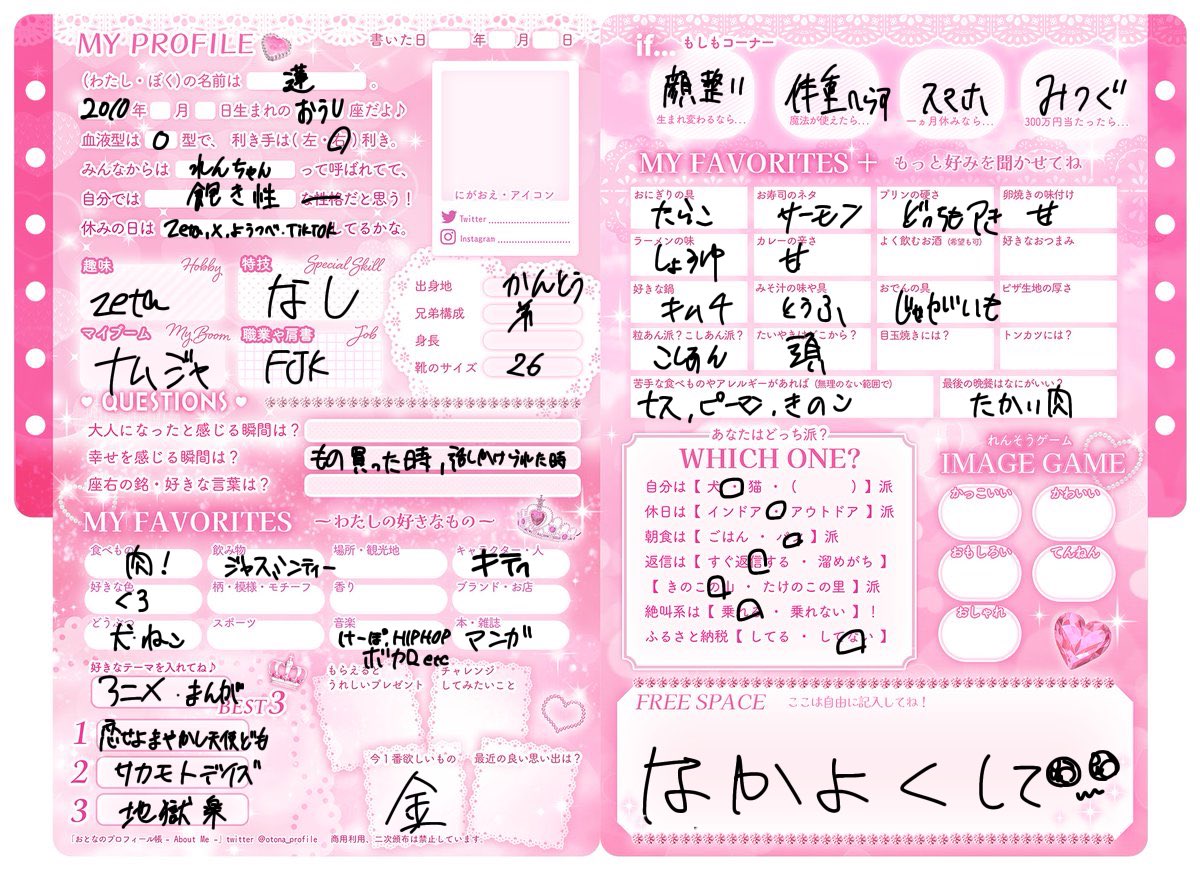 MY PROFILE
書いた日 年 月 日
(わたし・ぼく)の名前は 蓮 。
2010年 月 日生まれの おうし 座だよ♪
血液型は O 型で、利き手は(左・右)利き。
みんなからは れんちゃん って呼ばれてて、
自分では 飽き性 な性格だと思う！
休みの日は zeta, X, ようつべ, TikTok してるかな。
にがおえ・アイコン
Twitter
Instagram
趣味 Hobby
zeta
特技 Special Skill
なし
マイブーム My Boom
ナムジャ
職業や肩書 Job
FJK
出身地 かんとう
兄弟構成 弟
身長
靴のサイズ 26
QUESTIONS
大人になったと感じる瞬間は？
幸せを感じる瞬間は？ もの買った時, 話しかけられた時
座右の銘・好きな言葉は？
MY FAVORITES ～わたしの好きなもの～
食べもの 肉！
飲み物 ジャスミンティー
場所・観光地
キャラクター・人 キティ
好きな色 くろ
柄・模様・モチーフ
香り
ブランド・お店
どうぶつ 犬・ねこ
スポーツ
音楽 けーぽ, HIPHOP ボカロ etc
本・雑誌 マンガ
好きなテーマを入れてね♪
アニメ・まんが
BEST3
1 恋せよまやかし天使ども
2 サカモトデイズ
3 地獄楽
もらえるとうれしいプレゼント
チャレンジしてみたいこと
今1番欲しいもの
金
最近の良い思い出は？
「おとなのプロフィール帳 - About Me -」twitter @otona_profile 商用利用、二次頒布は禁止しています。
if... もしもコーナー
顔整い
生まれ変わるなら…
体重へらす
魔法が使えたら…
スマホ
一ヵ月休みなら…
みつぐ
300万円当たったら…
MY FAVORITES＋ もっと好みを聞かせてね
おにぎりの具 たらこ
お寿司のネタ サーモン
プリンの硬さ どっちもすき
卵焼きの味付け 甘
ラーメンの味 しょうゆ
カレーの辛さ 甘
よく飲むお酒 (希望も可)
好きなおつまみ
好きな鍋 キムチ
みそ汁の味や具 とうふ
おでんの具 じゃがいも
ピザ生地の厚さ
粒あん派？こしあん派？ こしあん
たいやきはどこから？ 頭
目玉焼きには？
トンカツには？
苦手な食べものやアレルギーがあれば (無理のない範囲で)
ナス, ピーマン, きのこ
最後の晩餐はなにがいい？
たかい肉
あなたはどっち派？
WHICH ONE?
自分は【 犬 ・ 猫 ・ ( ) 】派
休日は【 インドア ・ アウトドア 】派
朝食は【 ごはん ・ パン 】派
返信は【 すぐ返信する ・ 溜めがち 】
【 きのこの山 ・ たけのこの里 】派
絶叫系は【 乗れる ・ 乗れない 】！
ふるさと納税【 してる ・ してない 】
れんそうゲーム
IMAGE GAME
かっこいい
かわいい
おもしろい
てんねん
おしゃれ
FREE SPACE ここは自由に記入してね！
なかよくして